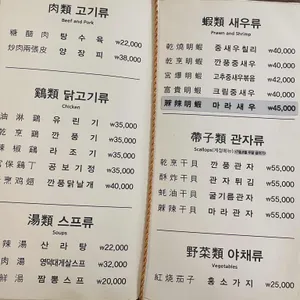 肉類 고기류
Beef and Pork
糖醋肉 탕수육 ₩22,000
炒肉兩張皮 양장피 ₩38,000
鷄類 닭고기류
Chicken
油淋鷄 유린기 ₩35,000
乾烹鷄 깐풍기 ₩35,000
辣椒鷄 라조기 ₩35,000
宮保鷄丁 공보기정 ₩35,000
烹鸡翅 깐풍닭날개 ₩40,000
湯類 스프류
Soups
辣湯 산라탕 ₩22,000
肉湯 영덕대게살스프 ₩32,000
鮮湯 짬뽕스프 ₩20,000
蝦類 새우류
Prawn and Shrimp
乾燒明蝦 중새우칠리 ₩40,000
乾烹明蝦 깐풍중새우 ₩40,000
宮爆明蝦 고추중새우볶음 ₩40,000
富貴明蝦 크림중새우 ₩40,000
麻辣明蝦 마라새우 ₩45,000
帶子類 관자류
Scallops
乾烹干貝 깐풍관자 ₩55,000
酥炸干貝 관자튀김 ₩55,000
蚝油干貝 굴기름관자 ₩55,000
麻辣干貝 마라관자 ₩55,000
野菜類 야채류
Vegetables
紅燒茄子 홍소가지 ₩25,000